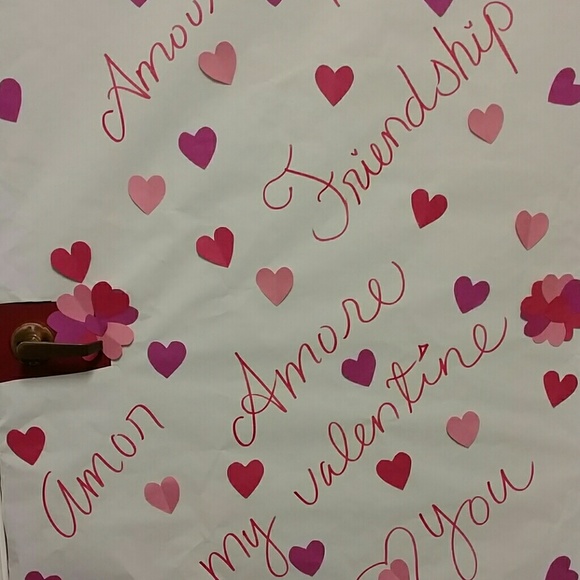 Amour
Friendship
Amore
Amor
my valentine
you